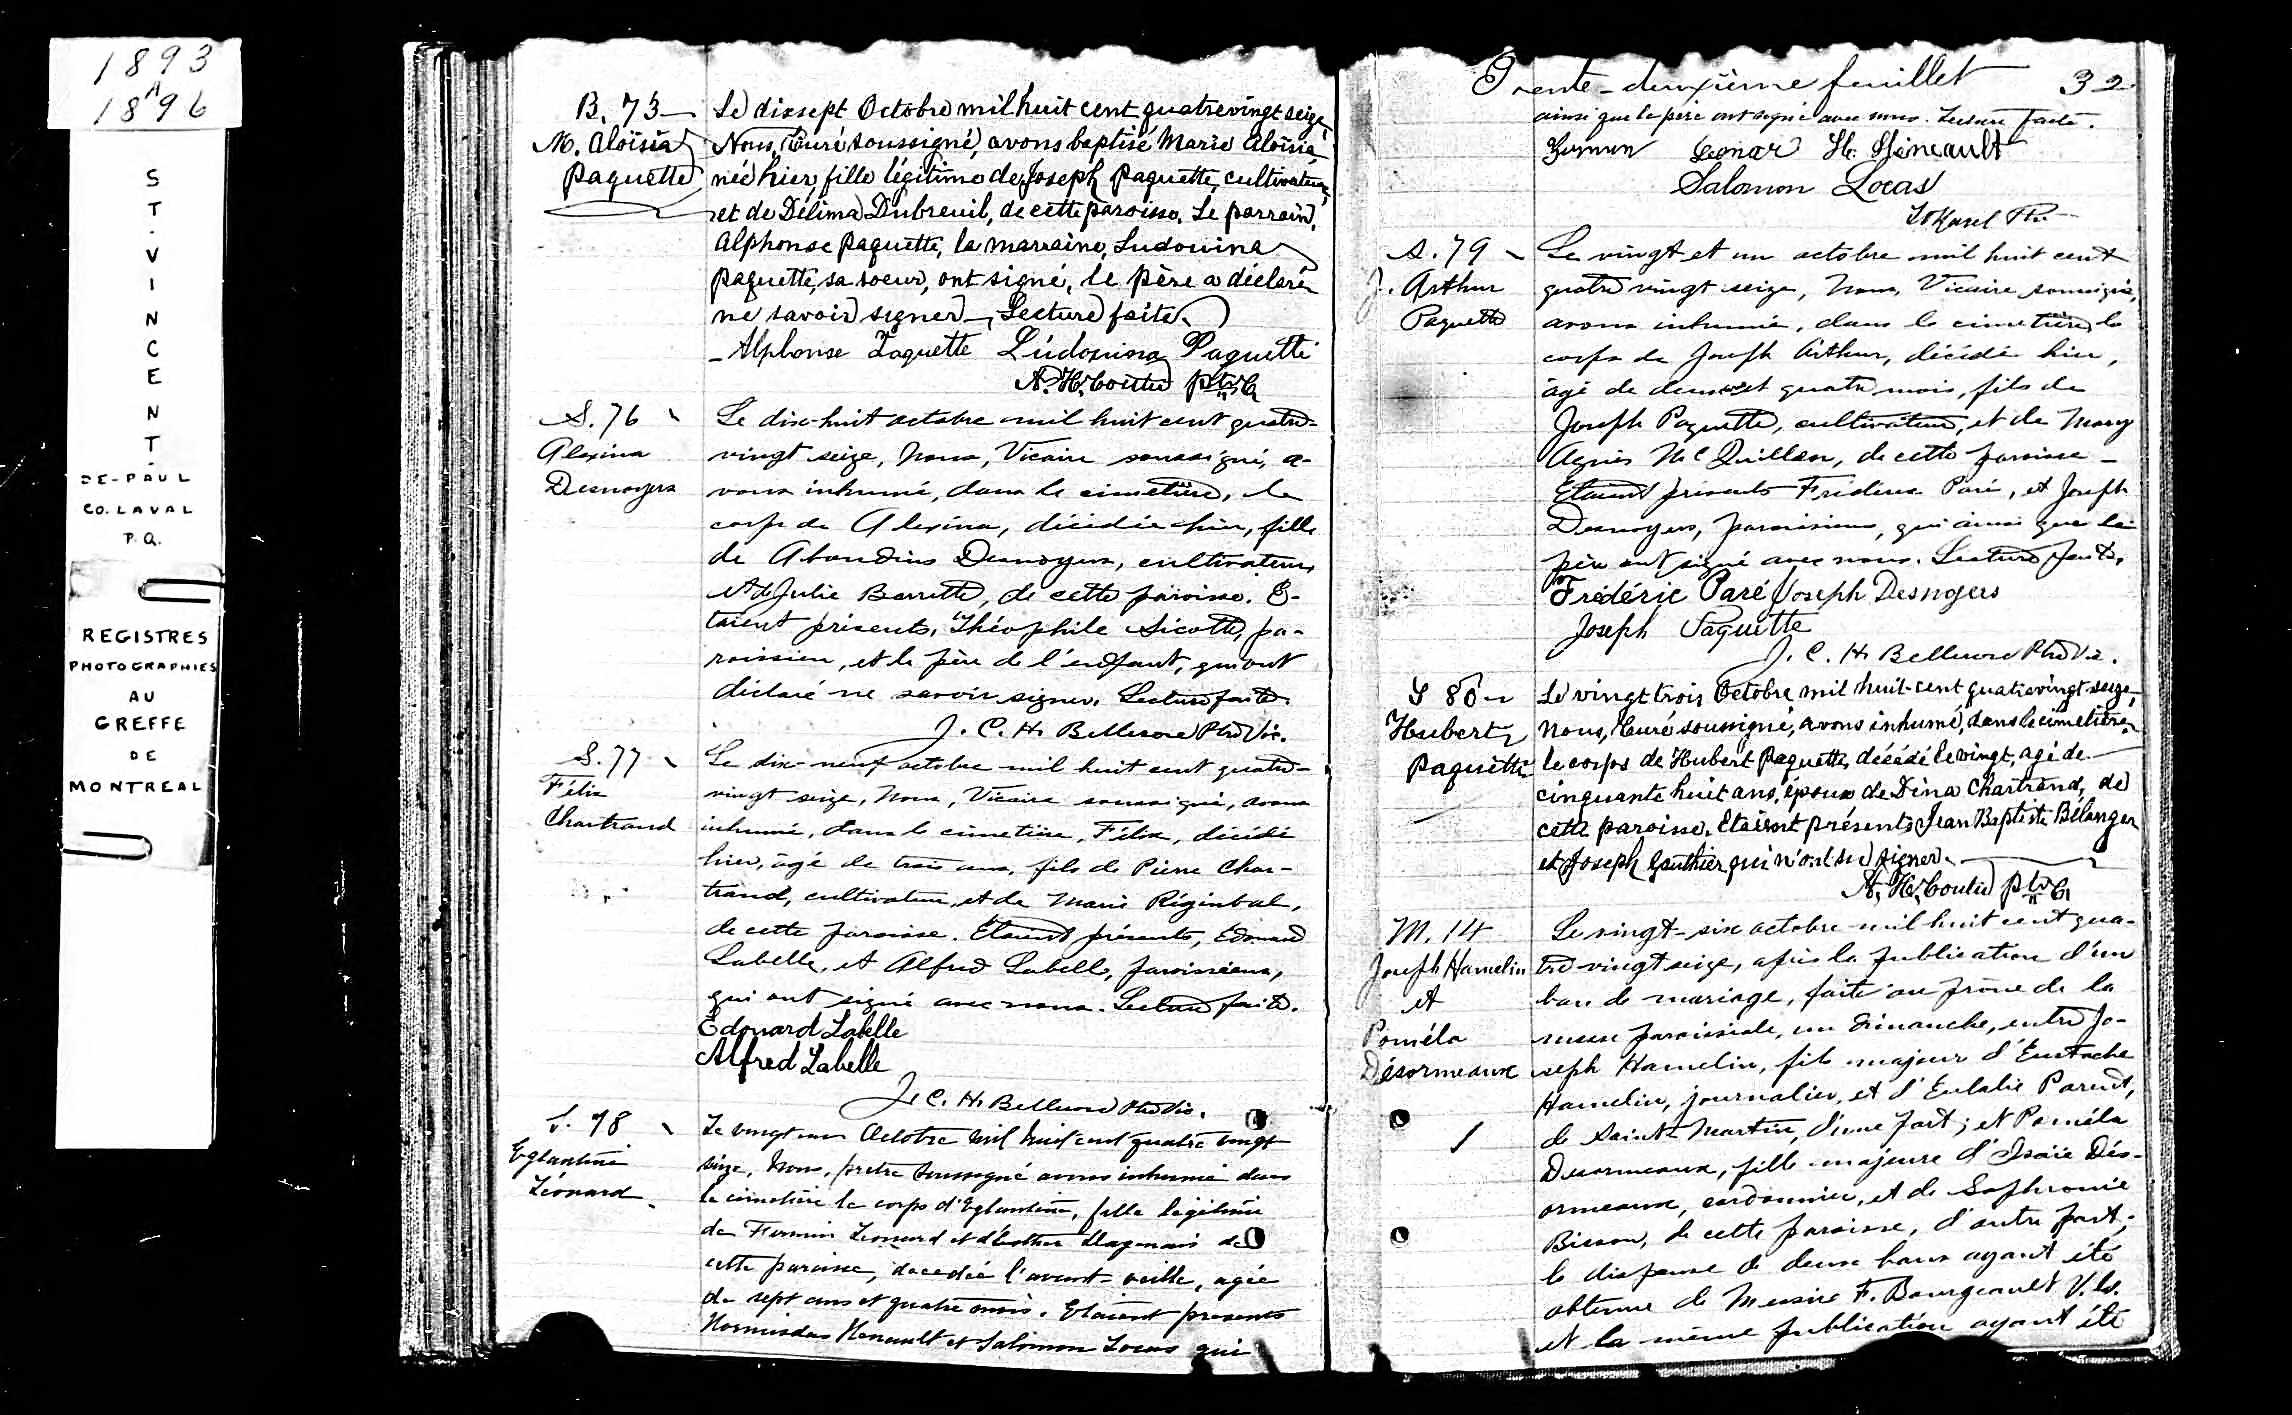 1893
A
1896
ST. VINCENT
DE-PAUL
CO. LAVAL
P.Q.
REGISTRES
PHOTOGRAPHIES
AU
GREFFE
DE
MONTREAL
B. 73
M. Aloïsia
Paquette
Le dixsept Octobre mil huit cent quatrevingt seize,
Nous, Curé soussigné, avons baptisé Marie Aloïsia
née hier, fille légitime de Joseph Paquette, cultivateur,
et de Délima Dubreuil, de cette paroisse. Le parrain,
Alphonse Paquette, la marraine, Ludovina
Paquette, sa soeur, ont signé, le père a déclaré
ne savoir signer. Lecture faite.
Alphonse Paquette Ludovina Paquette
A. H. Coutu ptre C.
S. 76
Alexina
Desnoyers
Le dix-huit octobre mil huit cent quatre-
vingt seize, Nous, Vicaire soussigné, a-
vons inhumé, dans le cimetière, le
corps de Alexina, décédée hier, fille
de Desnoyers, cultivateur,
et de Julie Barrette, de cette paroisse. E-
taient présents, Théophile Sicotte, pa-
roissien, et le père de l'enfant, qui ont
déclaré ne savoir signer. Lecture faite.
J. C. H. Bellerose Ptre Vic.
S. 77
Félix
Chartrand
Le dix-neuf octobre mil huit cent quatre-
vingt seize, Nous, Vicaire soussigné, avons
inhumé, dans le cimetière, Félix, décédé
hier, âgé de trois ans, fils de Pierre Char-
trand, cultivateur, et de Marie Régimbal,
de cette paroisse. Etaient présents, Edouard
Labelle, et Alfred Labelle, paroissiens,
qui ont signé avec nous. Lecture faite.
Edouard Labelle
Alfred Labelle
J. C. H. Bellerose Ptre Vic.
S. 78
Eglantine
Léonard
Le vingt Octobre mil huit cent quatre vingt
seize, Nous, prêtre soussigné avons inhumé dans
le cimetière le corps d'Eglantine, fille légitime
de Firmin Léonard et d'Esther Dagenais de
cette paroisse, décédée l'avant-veille, agée
de sept ans et quatre mois. Etaient présents
Hormisdas Henault et Salomon Locas qui
Trente-deuxième feuillet 32
ainsi que le père ont signé avec nous. Lecture faite.
Firmin Leonar H. Héneault
Salomon Locas
S. 79
J. Arthur
Paquette
Le vingt et un octobre mil huit cent
quatre vingt seize, Nous, Vicaire soussigné,
avons inhumé, dans le cimetière le
corps de Joseph Arthur, décédé hier,
âgé de quatre mois, fils de
Joseph Paquette, cultivateur, et de Mary
Agnès McQuillan, de cette paroisse –
Etaient présents Frédéric Paré, et Joseph
Desnoyers, paroissiens, qui ainsi que le
père ont signé avec nous. Lecture faite.
Frédéric Paré Joseph Desnoyers
Joseph Paquette
J. C. H. Bellerose Ptre Vic.
S 80
Hubert
Paquette
Le vingt trois Octobre mil huit-cent quatrevingt-seize,
Nous, Curé soussigné, avons inhumé, dans le cimetière
le corps de Hubert Paquette, décédé le vingt, agé de
cinquante huit ans, époux de Dina Chartrand, de
cette paroisse. Etaient présents Jean Baptiste Bélanger
et Joseph Gauthier qui n'ont su signer.
A. H. Coutu ptre C.
M. 14
Joseph Hamelin
et
Poméla
Désormeaux
Le vingt-six octobre mil huit cent qua-
tre vingt seize, après la publication d'un
ban de mariage, faite au prône de la
messe paroissiale, un dimanche, entre Jo-
seph Hamelin, fils majeur d'Eustache
Hamelin, journalier, et d'Eulalie Parent,
de Saint-Martin, d'une part; et Poméla
Desormeaux, fille majeure d'Isaïe Dés-
ormeaux, cordonnier, et de Sophronie
Bisson, de cette paroisse, d'autre part;
la dispense de deux bans ayant été
obtenue de Messire F. Bourgeault V. G.
et la même publication ayant été